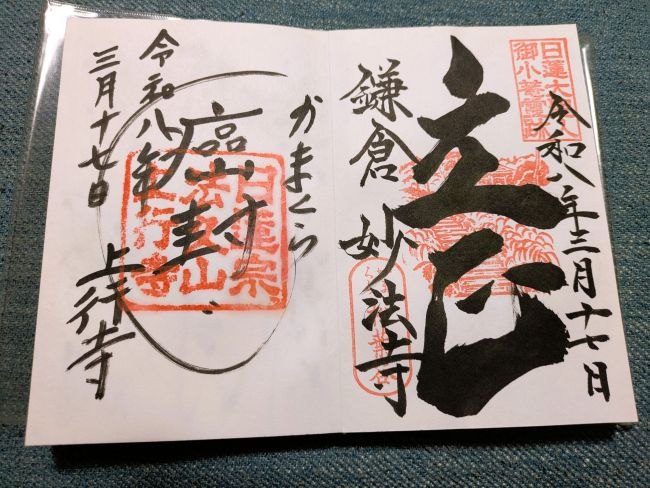 日蓮大
御小菴霊跡
令和八年三月十七日
立正
鎌倉 妙法寺
かまくら
癌封
日蓮宗
法久山
上行寺
令和八年
三月十七日
上行寺